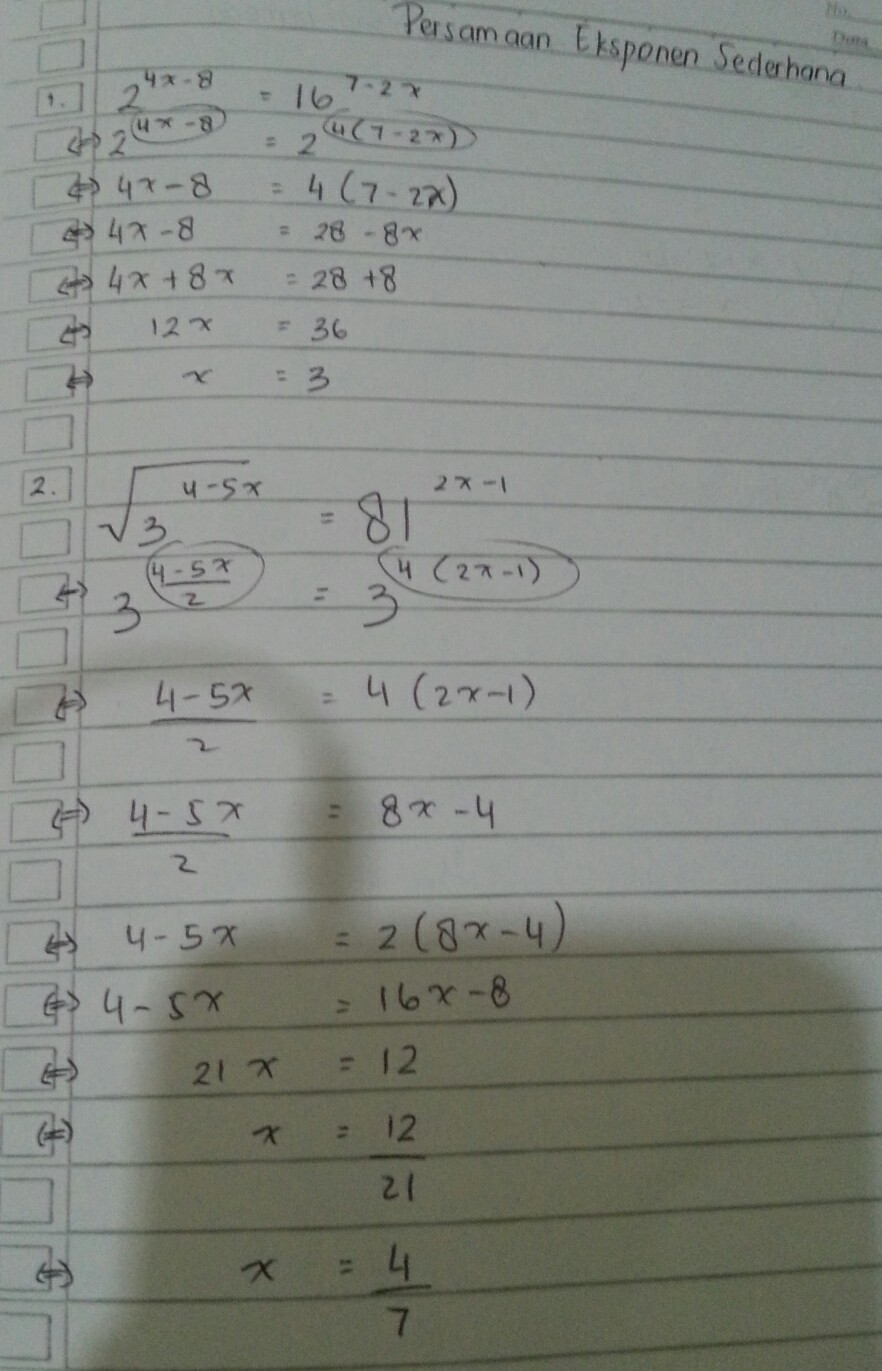 No.
Date
Persamaan Eksponen Sederhana
1. 2^(4x-8) = 16^(7-2x)
⇔ 2^(4x-8) = 2^(4(7-2x))
⇔ 4x-8 = 4(7-2x)
⇔ 4x-8 = 28-8x
⇔ 4x+8x = 28+8
⇔ 12x = 36
⇔ x = 3
2. √(3^(4-5x)) = 81^(2x-1)
⇔ 3^((4-5x)/2) = 3^(4(2x-1))
⇔ (4-5x)/2 = 4(2x-1)
⇔ (4-5x)/2 = 8x-4
⇔ 4-5x = 2(8x-4)
⇔ 4-5x = 16x-8
⇔ 21x = 12
⇔ x = 12/21
⇔ x = 4/7